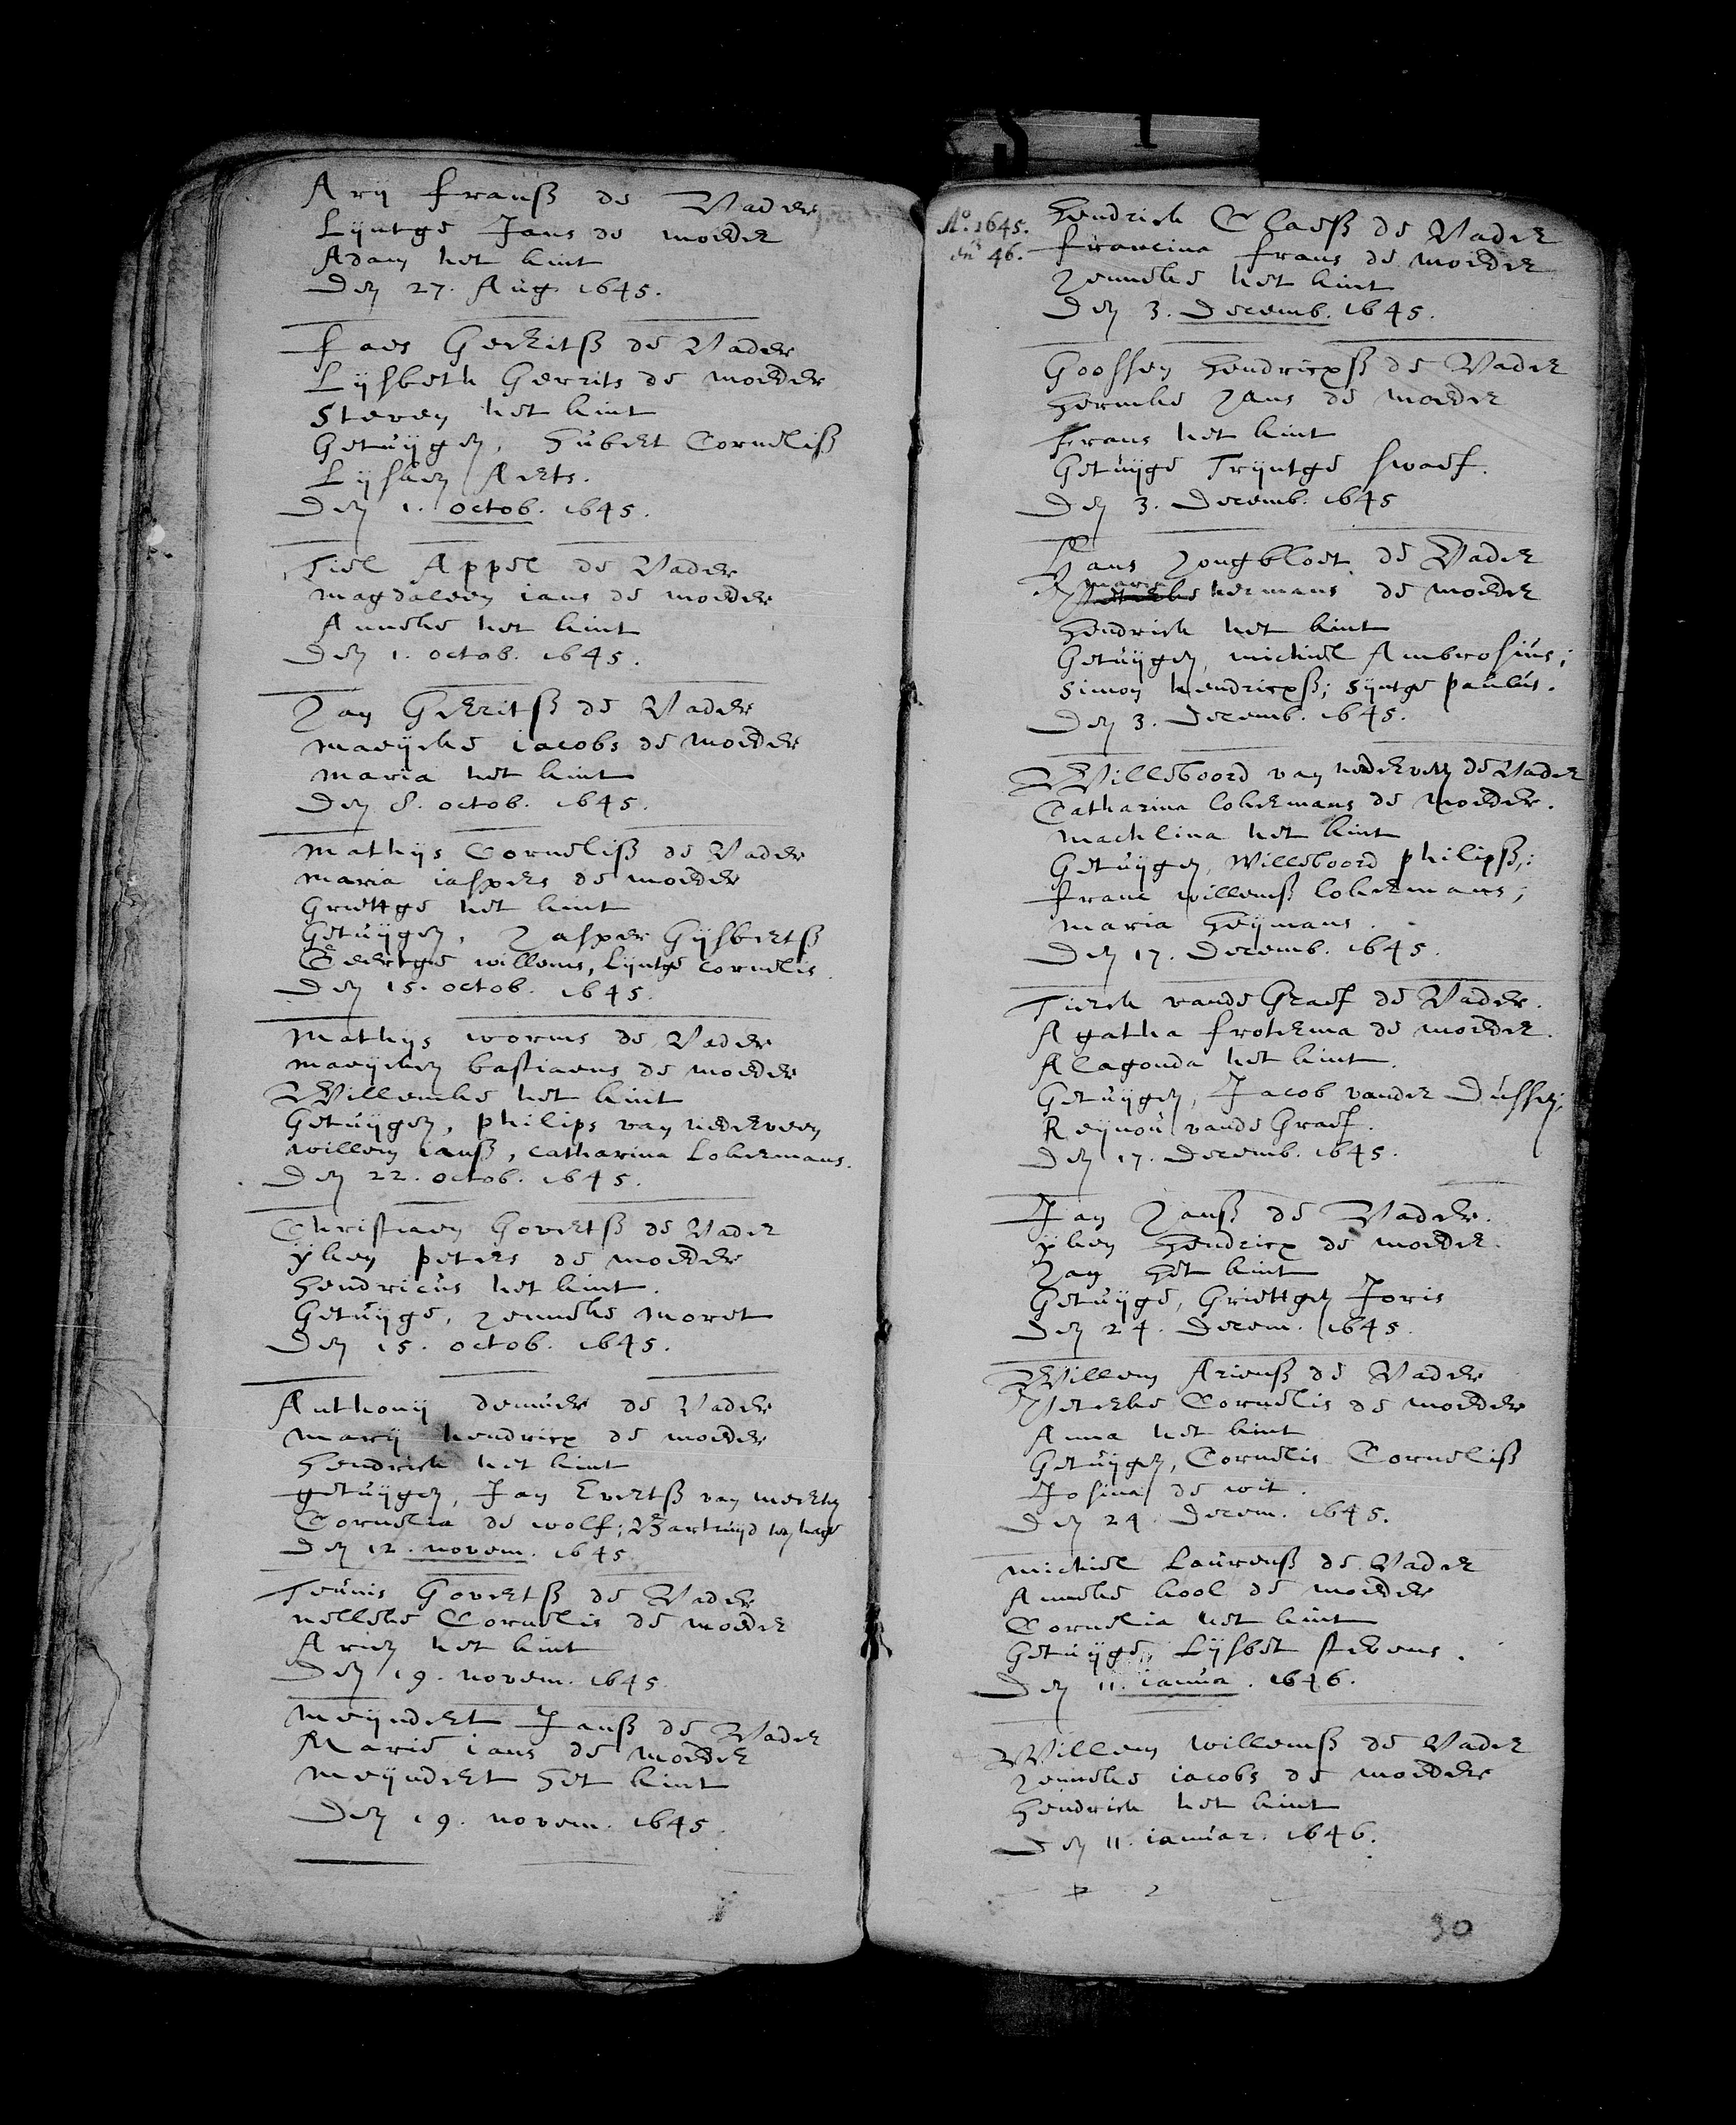 Arij Franß de Vader
Lijntge Jans de moeder
Adam het kint
Den 27. Aug. 1645.
Faes Gerritß de Vader
Lijsbeth Gerrits de moeder
Steven het kint
Getuijgen, Hubert Corneliß
Lijsken Aerts.
Den 1. octob. 1645.
Tiel Appel de Vader
magdaleen ians de moeder
Anneke het kint
Den 1. octob. 1645.
Jan Gerritß de Vader
maeijcke iacobs de moeder
maria het kint
Den 8. octob. 1645.
Mathijs Corneliß de Vader
maria iaspers de moeder
Griettge het kint
Getuijgen, Jasper Gijsbertß
Geertge willems, Lijntge cornelis.
Den 15. octob. 1645.
Mathijs worms de Vader
maeijken bastiaens de moeder
Willemke het kint
Getuijgen, philips van nederveen
willem ianß, catharina Lokermans.
Den 22. octob. 1645.
Christiaen Govertß de Vader
ijken peters de moeder
Hendricus het kint.
Getuijge, Jenneke moret
Den 15. octob. 1645.
Anthonij demuer de Vader
marij hendricx de moeder
Hendrick het kint
getuijgen, Jan Evertß van
Cornelia de wolf;
Den 12. novem. 1645
Teunis Govertß de Vader
nelleke Cornelis de moeder
Arien het kint
Den 19. novem. 1645
Meijndert Janß de Vader
Marie ians de moeder
Meijndert Het kint
Den 19. novem. 1645.
Ao. 1645.
en 46.
Hendrick Claeß de Vader
francina frans de moeder
Jenneke het kint
Den 3. Decemb. 1645.
Goossen Hendricxß de Vader
Hermke Jans de moeder
Frans het kint
Getuijge Trijntge swaef.
Den 3. Decemb. 1645
Hans Jongbloet de Vader
marie
Peterke hermans de moeder
Hendrick het kint
Getuijgen, michiel Ambrosius;
Simon hendricxß; Sijntge paulus.
Den 3. Decemb. 1645.
Willeboord van nederven de Vader
Catharina lokermans de moeder.
machlina het kint
Getuijgen, Willeboord philipß;
franc willemß lokermans;
maria Heijmans.
Den 17. Decemb. 1645.
Tierck vande Graef de Vader.
Agatha frokema de moeder.
Alagonda het kint.
Getuijgen, Jacob vander Dussen;
Reijnou vande Graef.
Den 17. Decemb. 1645.
Jan Janß de Vader.
ijken Hendricx de moeder.
Jan Het kint
Getuijge, Griettgen Joris
Den 24. Decem. 1645.
Willem Arienß de Vader
Peterke Cornelis de moeder
Anna het kint
Getuijgen, Cornelis Corneliß
Josina de wit.
Den 24. Decem. 1645.
michiel Laurenß de Vader
Anneke kool de moeder
Cornelia het kint
Getuijge, Lijsbet stevens.
Den 11. ianua. 1646.
Willem willemß de Vader
Jenneke iacobs de moeder
Hendrick het kint
Den 11. ianuar. 1646.
30